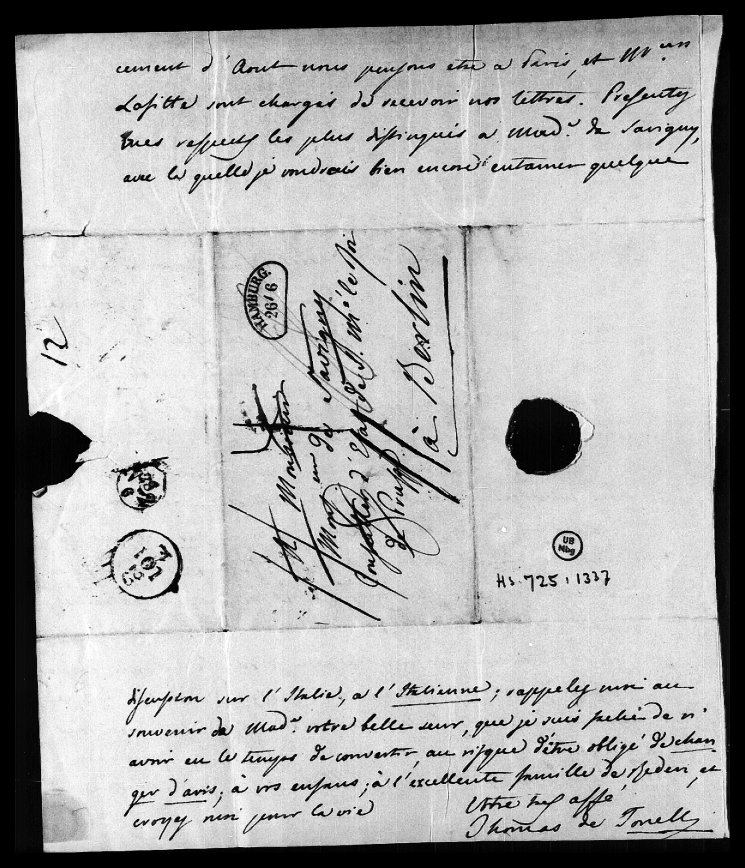 cement d'Aout nous pensons etre a Paris, et Mrs
Lafitte sont chargés de recevoir nos lettres. Presentez
mes respects les plus distingués a Made de Savigny,
avec la quelle je voudrais bien encore entamer quelque
12
HAMBURG
26/6
A Monsieur
Monsieur de Savigny
Conseiller d'Etat de S. M. le Roi
de Prusse
à Berlin
UB
Mbg
Hs. 725:1337
discussion sur l'Italie, a l'Italienne; rappelez moi au
souvenir de Made votre belle seur, que je suis faché de n'
avoir eu le temps de convertir, au risque d'être obligé de chan
ger d'avis; à vos enfans; à l'excellente famille de Reden, et
croyez moi pour la vie
Votre tres affé
Thomas de Tonelli